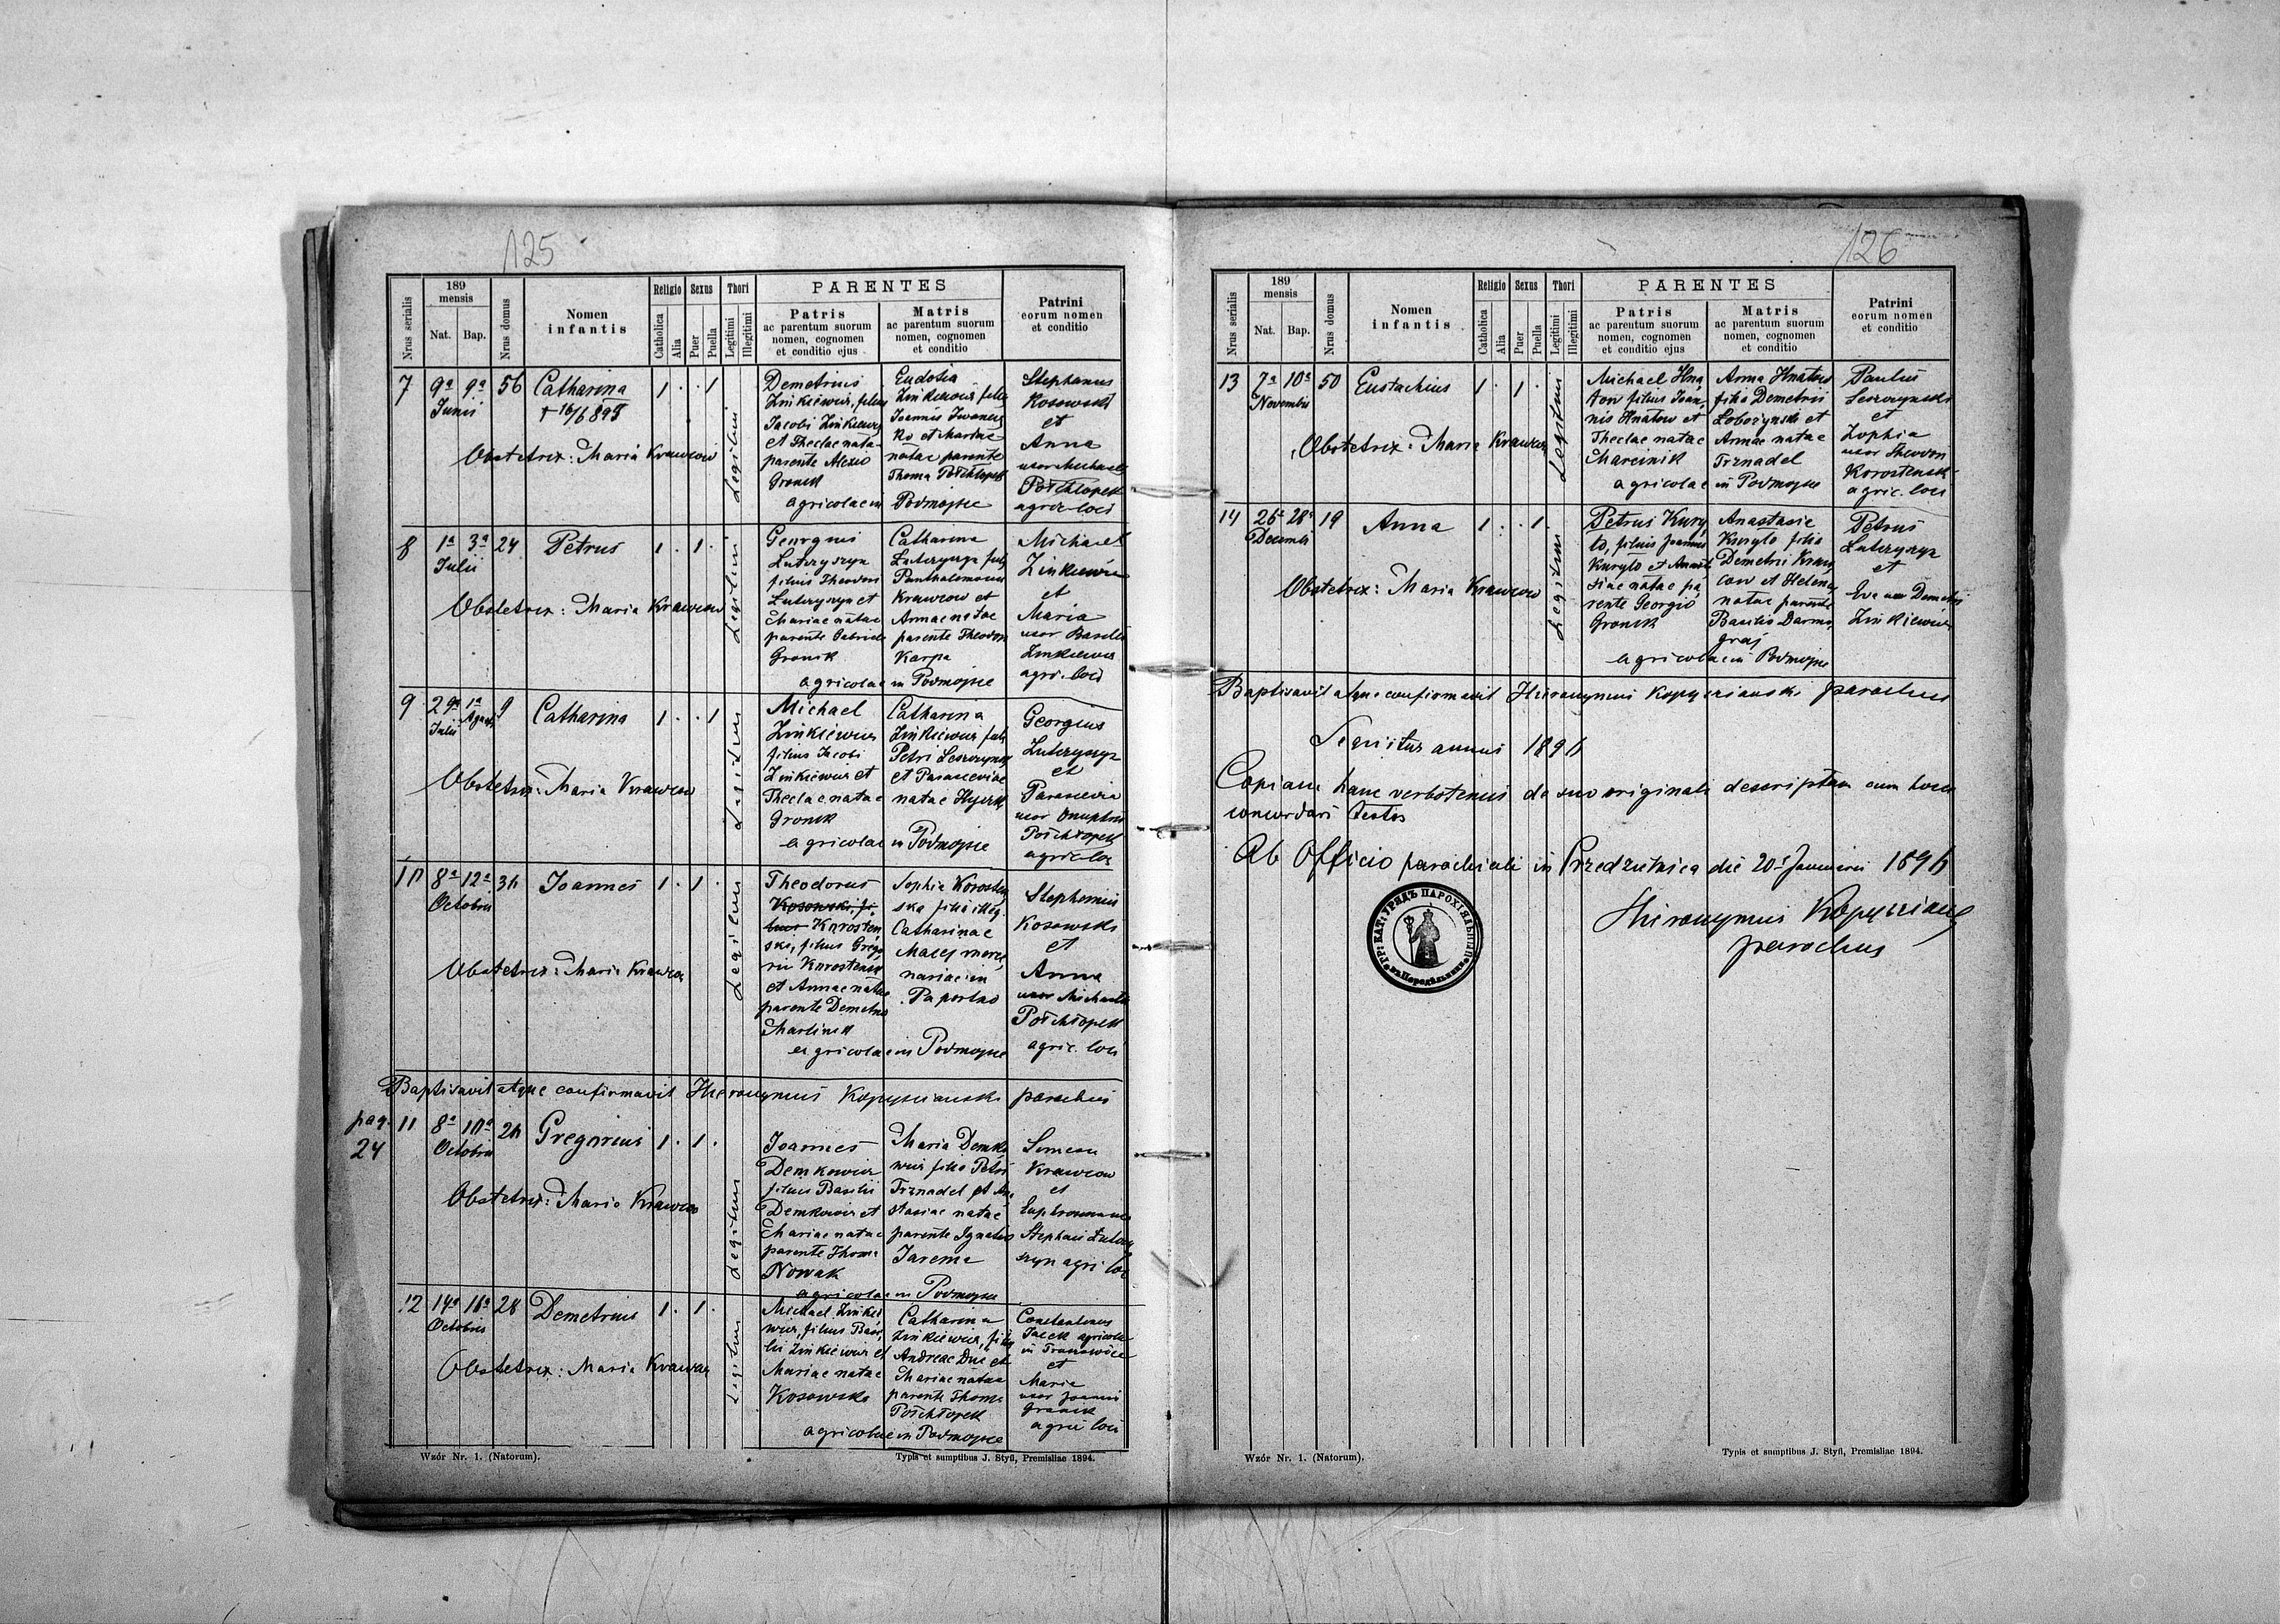 125
189
mensis
Nrus serialis
Nat.
Bap.
Nrus domus
Nomen
infantis
Religio
Catholica
Alia
Sexus
Puer
Puella
Thori
Legitimi
Illegitimi
PARENTES
Patris
ac parentum suorum
nomen, cognomen
et conditio ejus
Matris
ac parentum suorum
nomen, cognomen
et conditio
Patrini
eorum nomen
et conditio
7 9ª 9ª 56 Catharina 1 . . 1
Junii
Obstetrix: Maria Krawcow
Legitimi
Demetrius
Zinkiewicz, filius
Jacobi Zinkiewicz
et Theclae natae
parente Alexio
Gronik
Eudoxia
Zinkiewicz filia
Joannis
natae parente
Thoma Potchłopek
agricolae in Podmojsce
Stephanus
Kosowski
et
Anna
uxor Michaelis
Potchłopek
agric. loci
8 1ª 3ª 24 Petrus 1 . 1 .
Julii
Obstetrix: Maria Krawcow
Legitimi
Georgius
filius Theodori
et
Mariae natae
parente Gabriele
Gronik
Catharina
Krawcow et
Annae natae
parente Theodoro
Karpa
agricolae in Podmojsce
Michael
Zinkiewicz
et
Maria
uxor Basilii
Zinkiewicz
agric. loci
9 29ª 1ª 9 Catharina 1 . . 1
Julii Augusti
Obstetrix: Maria Krawcow
Legitimi
Michael
Zinkiewicz
filius Jacobi
Zinkiewicz et
Theclae natae
Gronik
Catharina
Zinkiewicz filia
Petri
et Parasceviae
natae
agricolae in Podmojsce
Georgius
et
Parascevia
uxor Onuphrii
Potchłopek
agric. loci
10 8ª 12ª Joannes 1 . 1 .
Octobris
Obstetrix: Maria Krawcow
Legitimi
Theodorus
Kosowski, fi-
lius Korosten
ski, filius Grego
rii Korostenski
et Annae natae
parente Demetrio
Martinek
Sophia Korosten
ska filia illeg.
Catharinae
Macej merce
nariae in
Paportno
agricolae in Podmojsce
Stephanus
Kosowski
et
Anna
uxor Michaelis
Potchłopek
agric. loci
Baptisavit atque confirmavit Hieronymus Kopyscianski parochus
pag.
24
11 8ª 10ª Gregorius 1 . 1 .
Octobris
Obstetrix: Maria Krawcow
Legitimi
Joannes
Demkowicz
filius Basilii
Demkowicz et
Mariae natae
parente Thoma
Nowak
Maria Demko
wicz filia Petri
Trznadel et Ana
stasiae natae
parente Ignatio
Jarema
agricolae in Podmojsce
Simeon
Krawcow
et
Stephani
agri loci
12 14ª 16ª 28 Demetrius 1 . 1 .
Octobris
Obstetrix: Maria Krawcow
Legitimi
Michael Zinkie
wicz, filius Basi
lii Zinkiewicz et
Mariae natae
Kosowska
Catharina
Zinkiewicz, filia
Andreae Duc et
Mariae natae
parente Thoma
Potchłopek
agricolae in Podmojsce
Constantinus
agricola
in
et
Maria
uxor Joannis
Gronik
agric loci
Wzór Nr. 1. (Natorum).
Typis et sumptibus J. Styfi, Premisliae 1894.
126
189
mensis
Nrus serialis
Nat.
Bap.
Nrus domus
Nomen
infantis
Religio
Catholica
Alia
Sexus
Puer
Puella
Thori
Legitimi
Illegitimi
PARENTES
Patris
ac parentum suorum
nomen, cognomen
et conditio ejus
Matris
ac parentum suorum
nomen, cognomen
et conditio
Patrini
eorum nomen
et conditio
13 7ª 10ª 50 Eustachius 1 . 1 .
Novembris
Obstetrix: Maria Krawcow
Legitimi
Michael Hna
tow filius Joan
nis Hnatow et
Theclae natae
Marcinik
Anna Hnatow
filia Demetrii
Łobozynski et
Annae natae
Trznadel
agricolae in Podmojsce
Paulus
Leszczynski
et
Zophia
uxor Theodori
Korostenski
agric. loci
14 26ª 28ª 19 Anna 1 . . 1
Decembris
Obstetrix: Maria Krawcow
Legitimi
Petrus Kury
lo, filius Joannis
Kurylo et Anasta
siae natae pa
rente Georgio
Gronik
Anastasia
Kurylo filia
Demetrii Kraw
cow et Helenae
natae parente
Basilio Darmo
graj
agricolae in Podmojsce
Petrus
et
Eva uxor Demetrii
Zinkiewicz
Baptisavit atque confirmavit Hieronymus Kopyscianski parochus
Sequitur annus 1896
Copiam hanc verbotenus de suo originali descriptam cum hocce
concordari testor
Ab Officio parochiali in Przedzielnica die 20ª Januarii 1896
Hieronymus Kopyscianski
parochus
ГР: КАТ: УРЯДЪ ПАРОХІЯЛЬНЫЙ
Wzór Nr. 1. (Natorum).
Typis et sumptibus J. Styfi, Premisliae 1894.